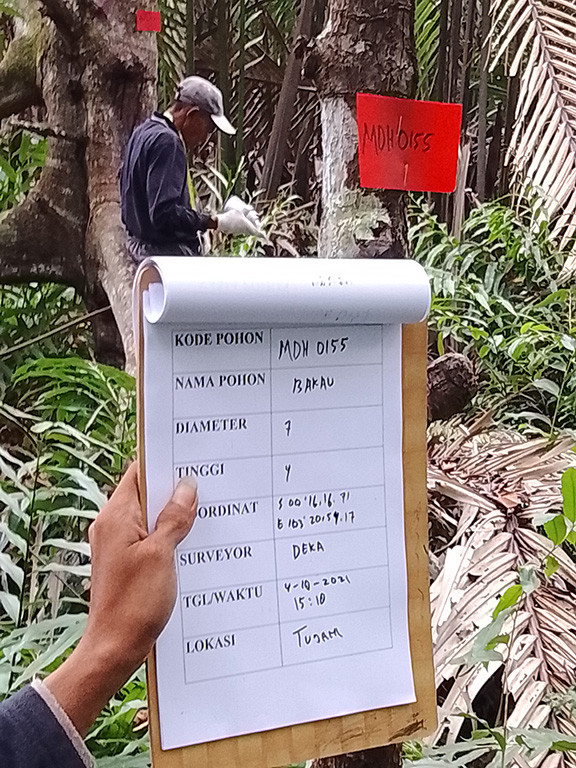 MDH 0155
KODE POHON MDH 0155
NAMA POHON BAKAU
DIAMETER 7
TINGGI 4
ORDINAT S 00°16.16.71
E 103° 20.54.17
SURVEYOR DEKA
TGL/WAKTU 4-10-2021
15:10
LOKASI TUJAM